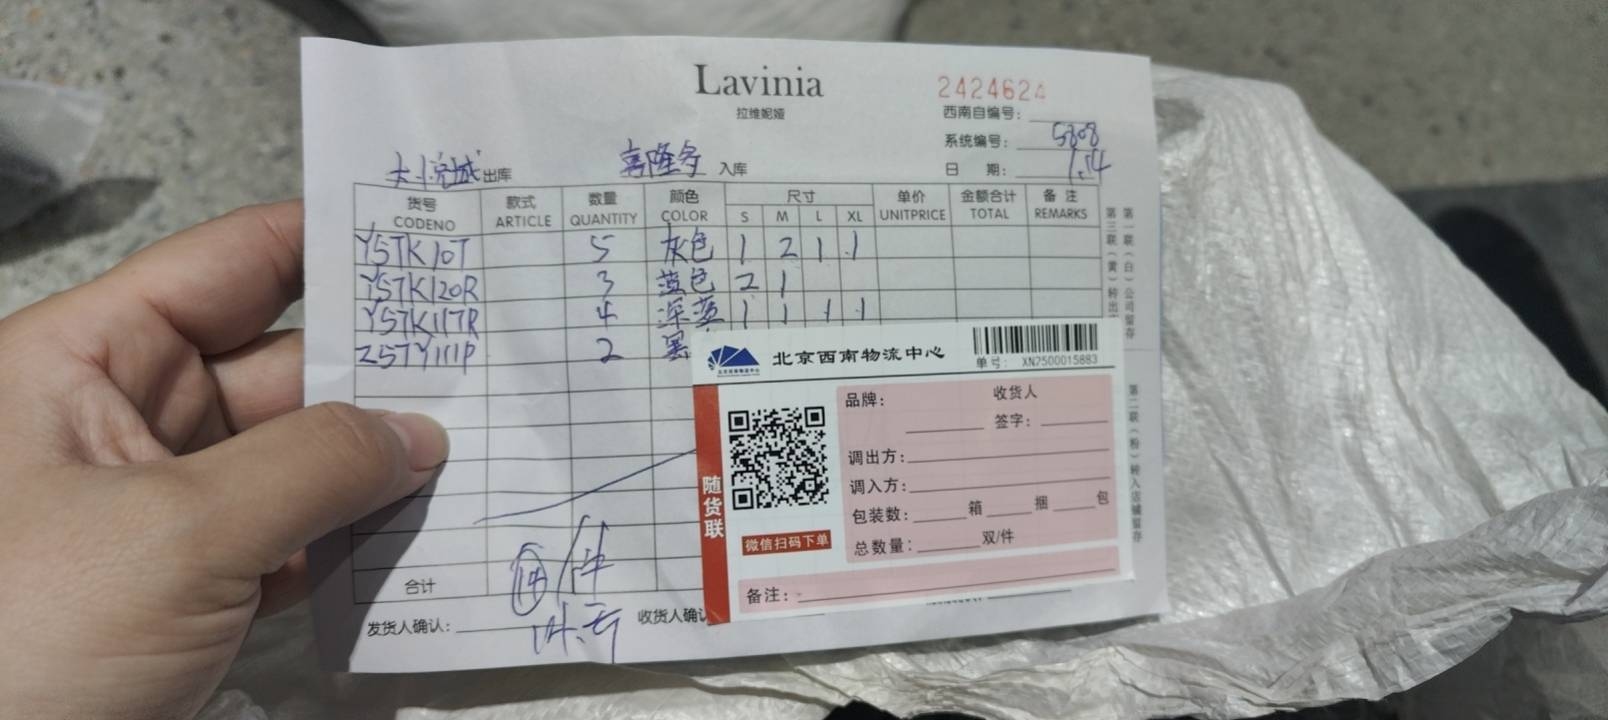 Lavinia
拉维妮娅
2424624
西南自编号:
系统编号: 5808
出库
喜隆多 入库
日 期: 1.14
货号 款式 数量 颜色 尺寸 单价 金额合计 备注
CODENO ARTICLE QUANTITY COLOR S M L XL UNITPRICE TOTAL REMARKS
Y57K10T 5 灰色 1 2 1 1
Y57K120R 3 蓝色 2 1
Y57K117R 4 深蓝 1 1 1 1
Z57Y111P 2 黑
合计 14 件
发货人确认:
收货人确认
第一联(白)公司留存
第二联(粉)转入店铺留存
第三联(黄)转出
北京西南物流中心
单号: XN7500015883
随货联
微信扫码下单
品牌: 收货人
签字:
调出方:
调入方:
包装数: 箱 捆 包
总数量: 双/件
备注: